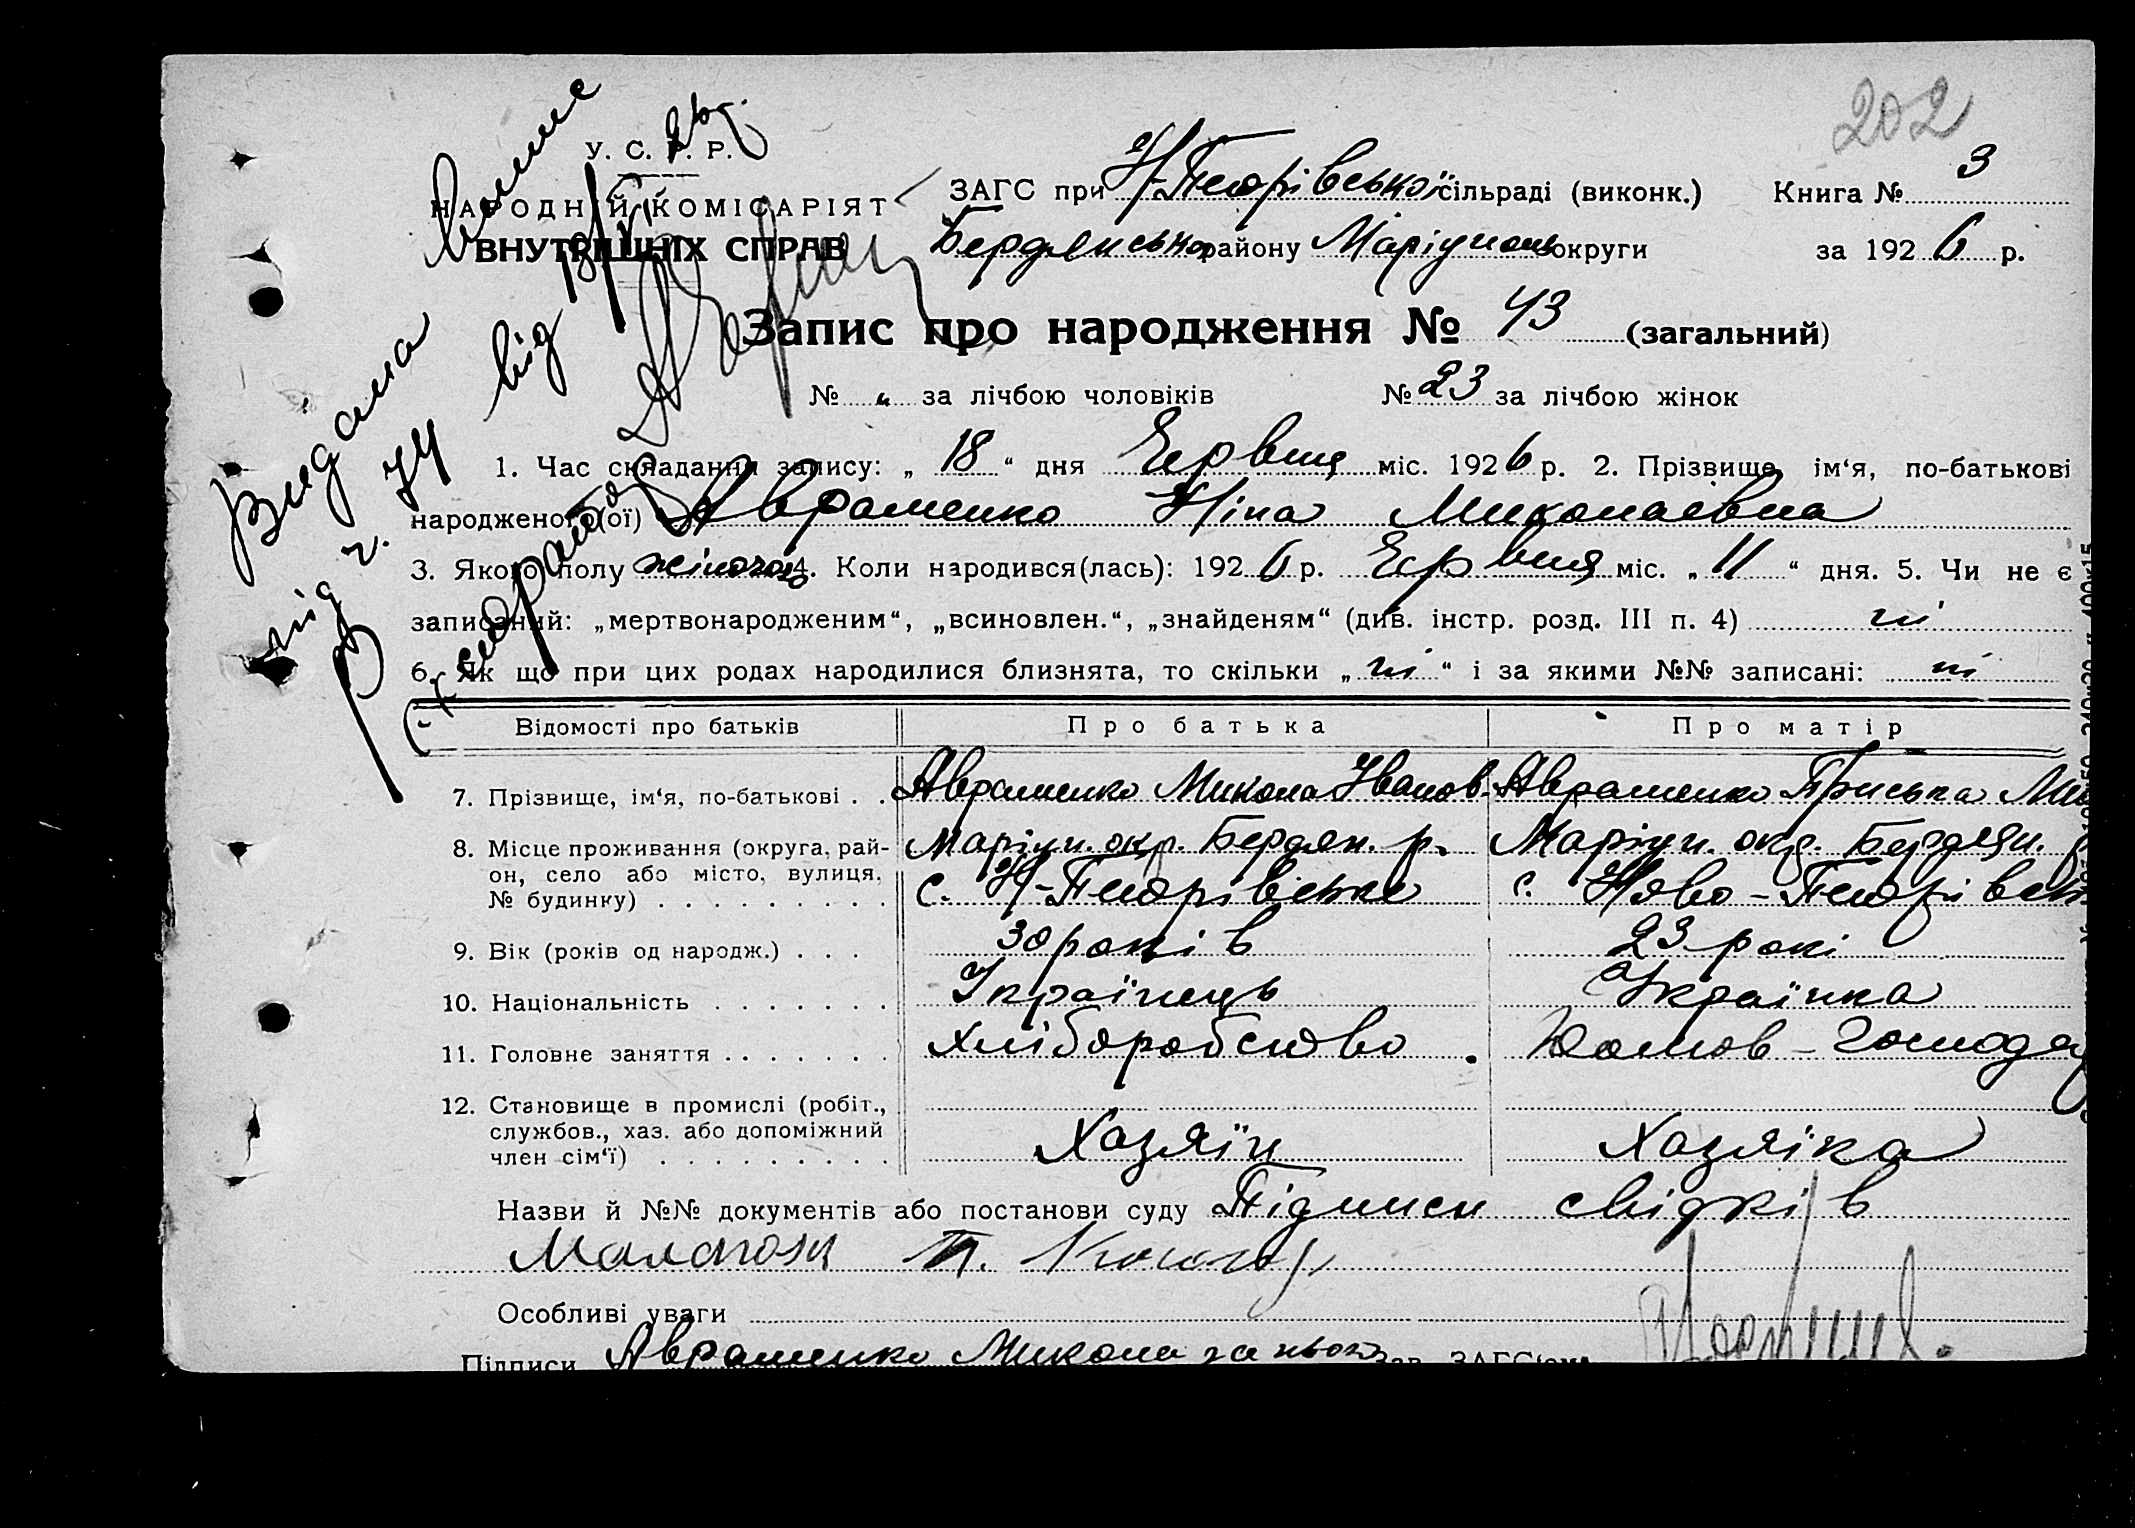 202
У. С. Р. Р.
НАРОДНІЙ КОМІСАРІЯТ
ВНУТРІШНІХ СПРАВ
ЗАГС при Н-Петрівської сільраді (виконк.) Книга № 3
Бердянсько району Маріупольс округи за 1926 р.
Видана виписка
під ч. 74 від 18/VI 26 р.
Запис про народження № 43 (загальний)
№ „ за лічбою чоловіків № 23 за лічбою жінок
1. Час складання запису: „18“ дня Червня міс. 1926 р. 2. Прізвище, ім‘я, по-батькові
народженого(ої) Авраменко Ніна Миколаєвна
3. Якого полу жіночого 4. Коли народився(лась): 1926 р. Червня міс. „11“ дня. 5. Чи не є
записаний: „мертвонародженим“, „всиновлен.“, „знайденям“ (див. інстр. розд. III п. 4) ні
6. Як що при цих родах народилися близнята, то скільки „ні“ і за якими №№ записані: ні
Відомості про батьків Про батька Про матір
7. Прізвище, ім‘я, по-батькові . . Авраменко Микола Іванов. Авраменко Приська Ми
8. Місце проживання (округа, рай- Маріуп. окр. Бердян. р. Маріуп. окр. Бердян.
он, село або місто, вулиця,
№ будинку) . . . . . . . . . с. Н-Петрівське с. Ново-Петрівськ
9. Вік (років од народж.) . . . 30 років 23 рокі
10. Національність . . . . . . . Українець Українка
11. Головне заняття . . . . . . . Хліборобство. Домов-господар
12. Становище в промислі (робіт.,
службов., хаз. або допоміжний
член сім‘ї) . . . . . . . . . Хазяїн Хазяїка
Назви й №№ документів або постанови суду Підписи свідків
Особливі уваги
Підписи Авраменко Микола за нього Зав. ЗАГС‘ом